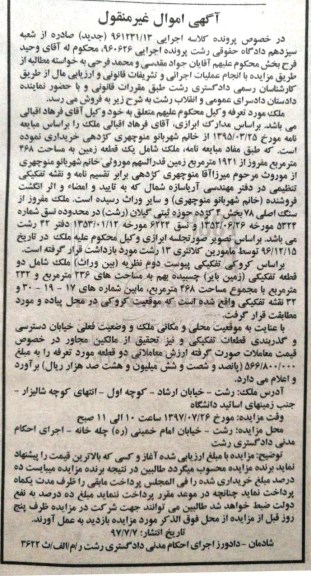 آگهی اموال غیرمنقول
در خصوص پرونده کلاسه اجرایی ۹۶۱۲۳۱/۱۳ (جدید) صادره از شعبه
سیزدهم دادگاه حقوقی رشت پرونده اجرایی ۹۶۰۶۲۶، محکوم له آقای وحید
فرح بخش محکوم علیهم آقایان جواد مقدسی و محمد فرحی به خواسته مطالبه از
طریق مزایده با انجام عملیات اجرائی و تشریفات قانونی و ارزیابی مال از طریق
کارشناسان رسمی دادگستری رشت طبق مقررات قانونی و با حضور نماینده
دادستان دادسرای عمومی و انقلاب رشت به شرح زیر به فروش می رسد.
ملک مورد تعرفه و کیل محکوم علیهم متعلق به خود وکیل آقای فرهاد اقبالی
می باشد. براساس مدارک ابرازی، آقای فرهاد اقبالی ملک را براساس مبایعه
نامه مورخ ۱۳۹۵/۰۳/۲۵ از خانم شهربانو منوچهری کژدهی خریداری نموده
است. که طبق مفاد مبایعه نامه، ملک شامل یک قطعه زمین به مساحت ۴۶۸
مترمربع مفروز از ۱۹۲۱ مترمربع زمین قدرالسهم موروثی خانم شهربانو منوچهری
از موروث مرحوم میرزاآقا منوچهری کژدهی برابر تقسیم نامه و نقشه تفکیکی
تنظیمی در دفتر مهندسی آریاسازه شمال که به تایید و امضاء و اثر انگشت
فروشنده (خانم شهربانو منوچهری) و سایر وراث رسیده است. ملک مفروز از
سنگ اصلی ۷۸ بخش ۴ کژده حوزه ثبتی گیلان (رشت) در محدوده نسق شماره
۵۳۲۴ مورخه ۱۳۵۳/۰۶/۲۶ و نسق ۶۲۲۲ مورخه ۱۳۵۳/۰۱/۱۲ دفتر ۴۲ رشت
می باشد. براساس تصویر صورتجلسه ابرازی وکیل محکوم علیه ملک در تاریخ
۹۶/۱۲/۱۵ توسط مامورین کلانتری ۱۳ رشت مورد بازداشت قرار گرفته است.
براساس کروکی تفکیکی پیوست دوم نظریه (بین وراث) ملک شامل دو
قطعه تفکیکی (زمین بایر) چسبیده بهم به مساحت های ۲۳۶ مترمربع و ۲۳۲
مترمربع با مجموع مساحت ۴۶۸ مترمربع، مابین شماره های ۱۷ - ۱۹ - ۳۰ و
۳۲ نقشه تفکیکی واقع شده است که موقعیت کروکی در محل پیاده و مورد
مطابقت قرار گرفت.
با عنایت به موقعیت محلی و مکانی ملک و وضعیت فعلی خیابان دسترسی
و گذربندی قطعات تفکیکی و نیز تحقیق از مالکین مجاور در خصوص
قیمت معاملات صورت گرفته ارزش معاملاتی دو قطعه مورد تعرفه را به مبلغ
۵۶۶/۸۰۰/۰۰۰ (پانصد و شصت و شش میلیون و هشت صد هزار ریال) برآورد
و اعلام می دارد.
آدرس ملک: رشت - خیابان ارشاد - کوچه اول - انتهای کوچه شالیزار -
جنب زمینهای اساتید دانشگاه
وقت مزایده: مورخ ۱۳۹۷/۰۷/۲۶ ساعت ۱۰ الی ۱۱ صبح
محل مزایده: رشت - خیابان امام خمینی (ره) چله خانه - اجرای احکام
مدنی دادگستری رشت
توضیح: مزایده با مبلغ ارزیابی شده آغاز و کسی که بالاترین قیمت را پیشنهاد
نماید برنده مزایده محسوب میگردد طالبین در نتیجه برنده مزایده میبایست ده
درصد مبلغ خریداری شده را فی المجلس پرداخت مابقی را ظرف مدت یکماه
پرداخت نماید چنانچه در موعد مقرر پرداخت ننماید مبلغ ده درصد به نفع
دولت ضبط خواهد شد طالبین می توانند جهت شرکت در مزایده ظرف پنج
روز قبل از مزایده از محل فوق الذکر مورد مزایده بازدید به عمل آورند.
تاریخ انتشار: ۹۷/۷/۷
شادمان - دادورز اجرای احکام مدنی دادگستری رشت ر/م/الف/ث ۳۶۲۲